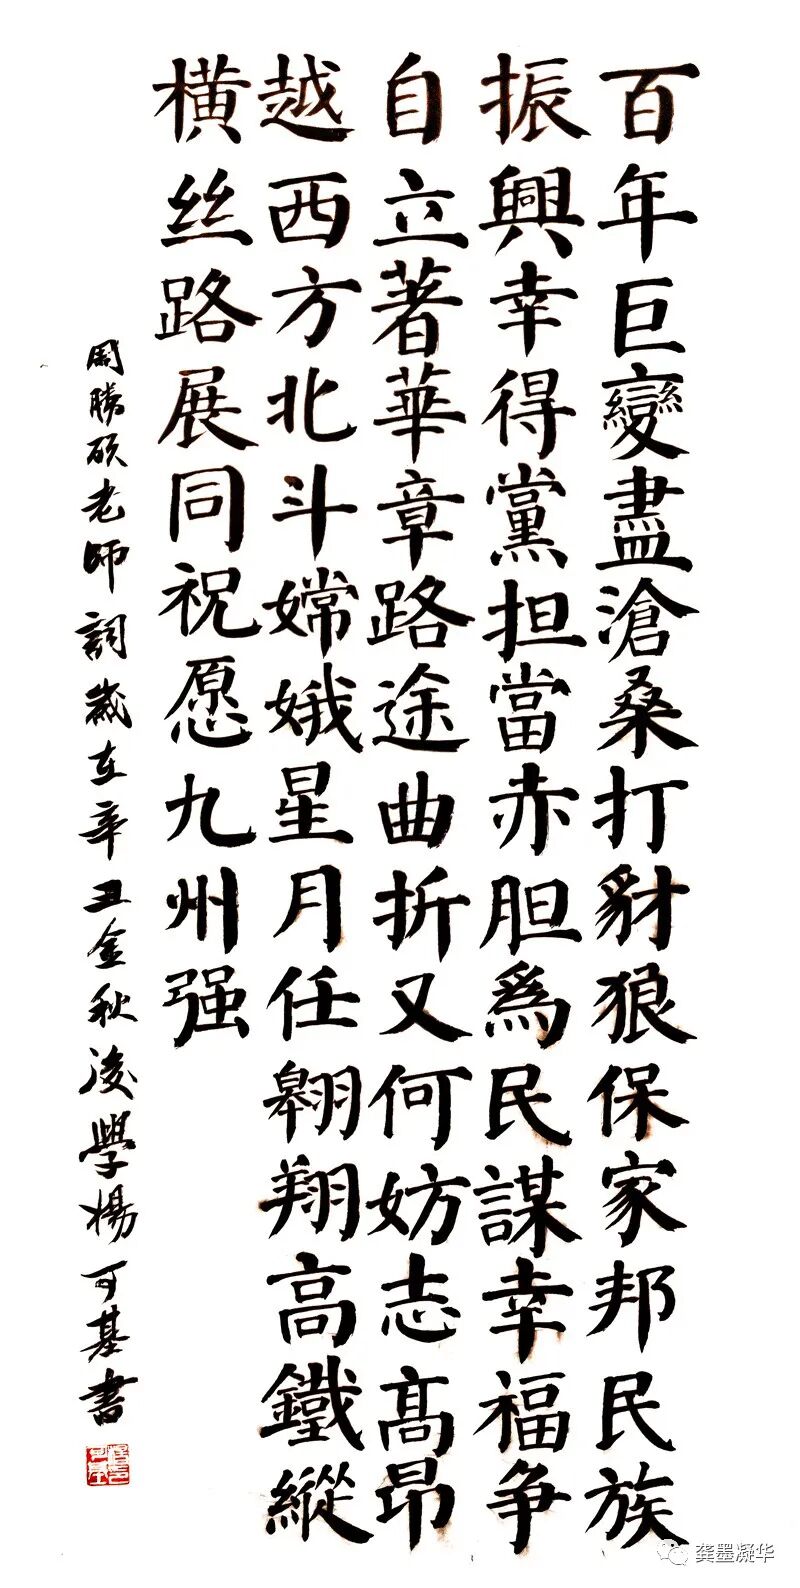 百年巨變盡滄桑打豺狼保家邦民族
振興幸得黨担當赤胆為民謀幸福争
自立著華章路途曲折又何妨志高昂
越西方北斗嫦娥星月任翱翔高鐵縱
横丝路展同祝愿九州强
周勝硕老师詞歲在辛丑金秋後學楊可基書
龚墨凝华